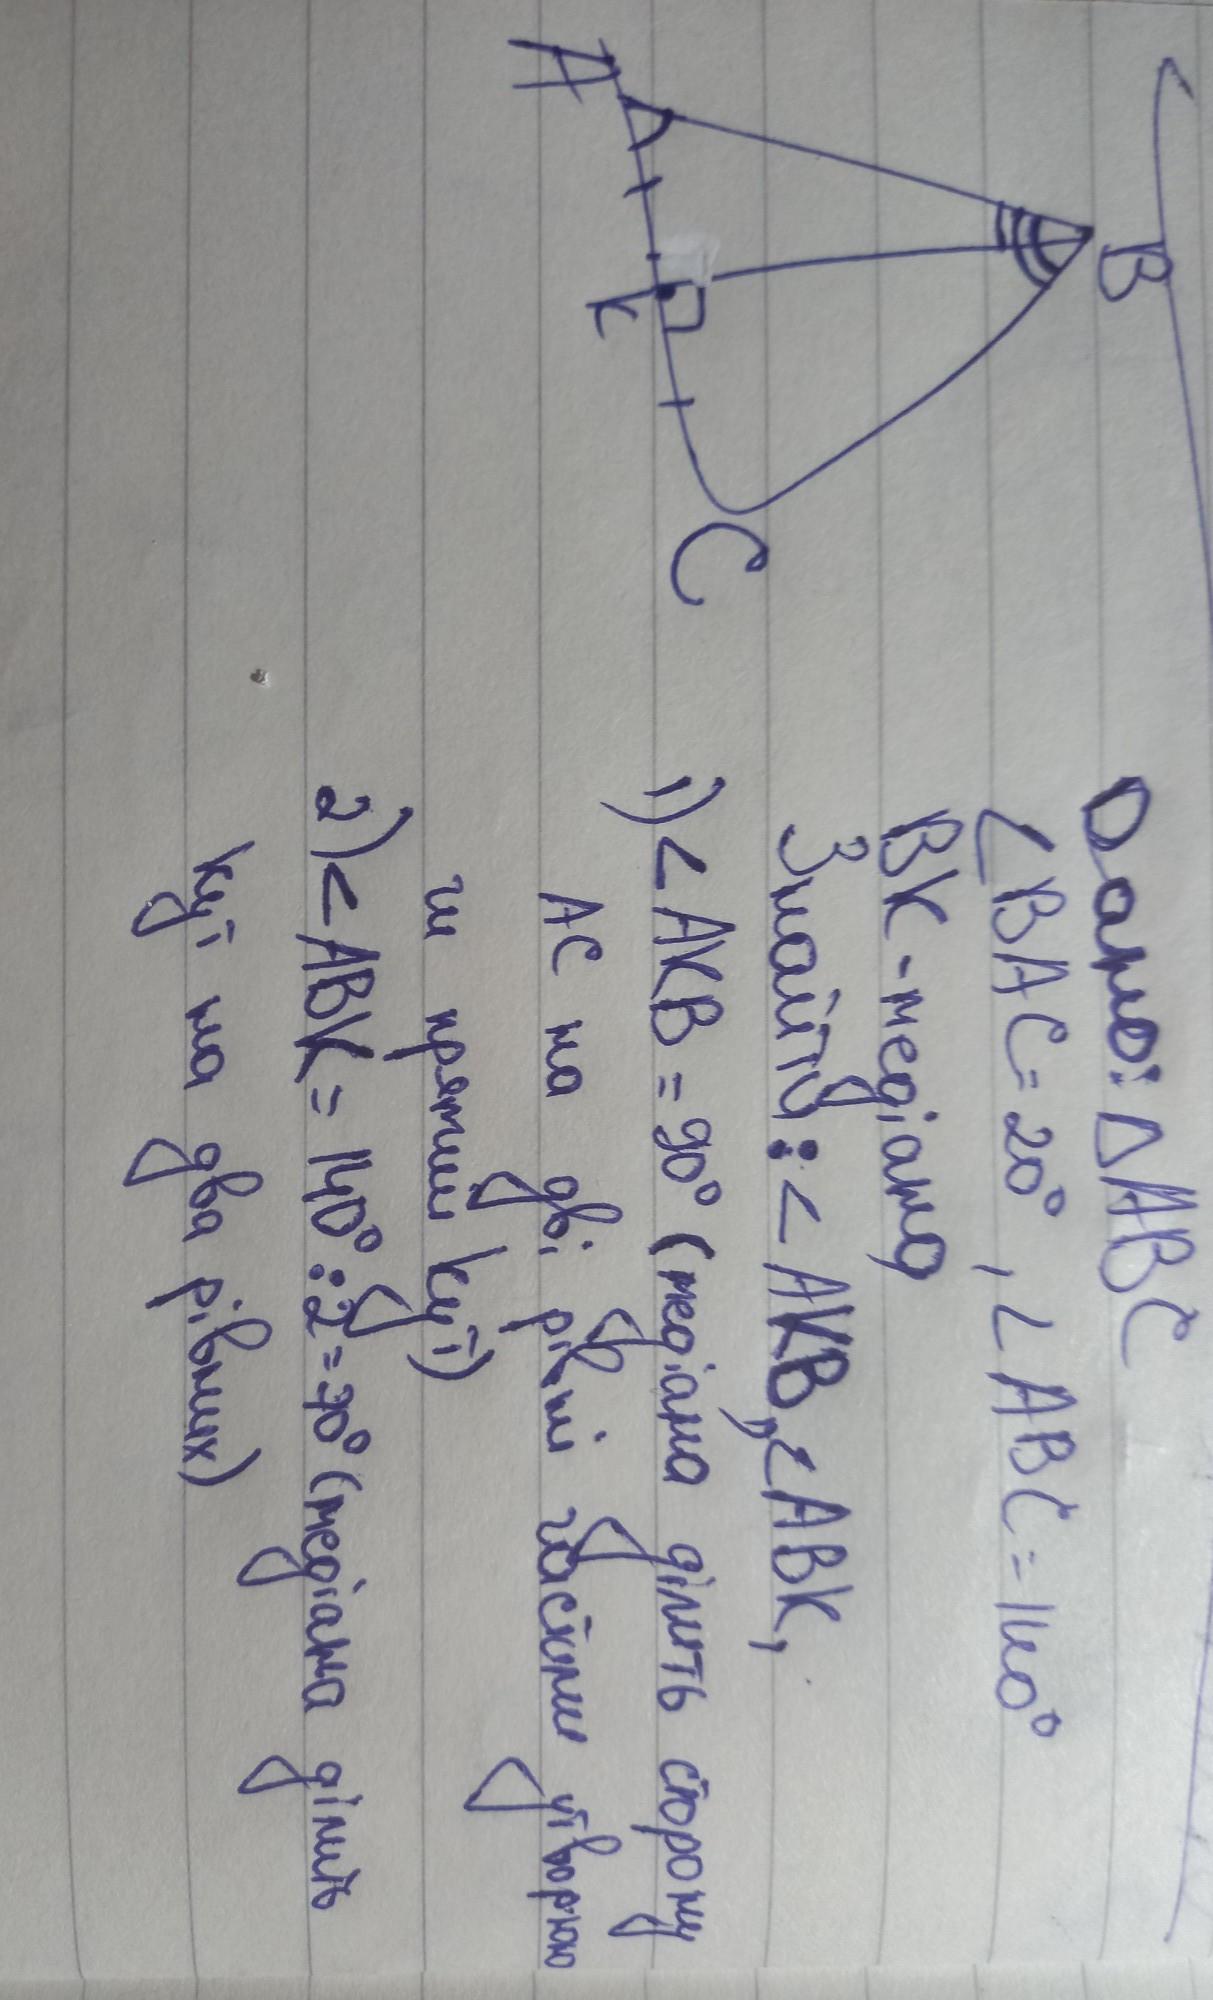 B
A
K
C
Дано: ΔABC
<BAC=20°, <ABC=140°
BK-медіана
Знайти: <AKB, <ABK,
1) <AKB=90° (медіана ділить сторону
AC на дві рівні частини утворюю
чи прями куті)
2) <ABK=140°:2=70° (медіана ділить
куті на два рівних)